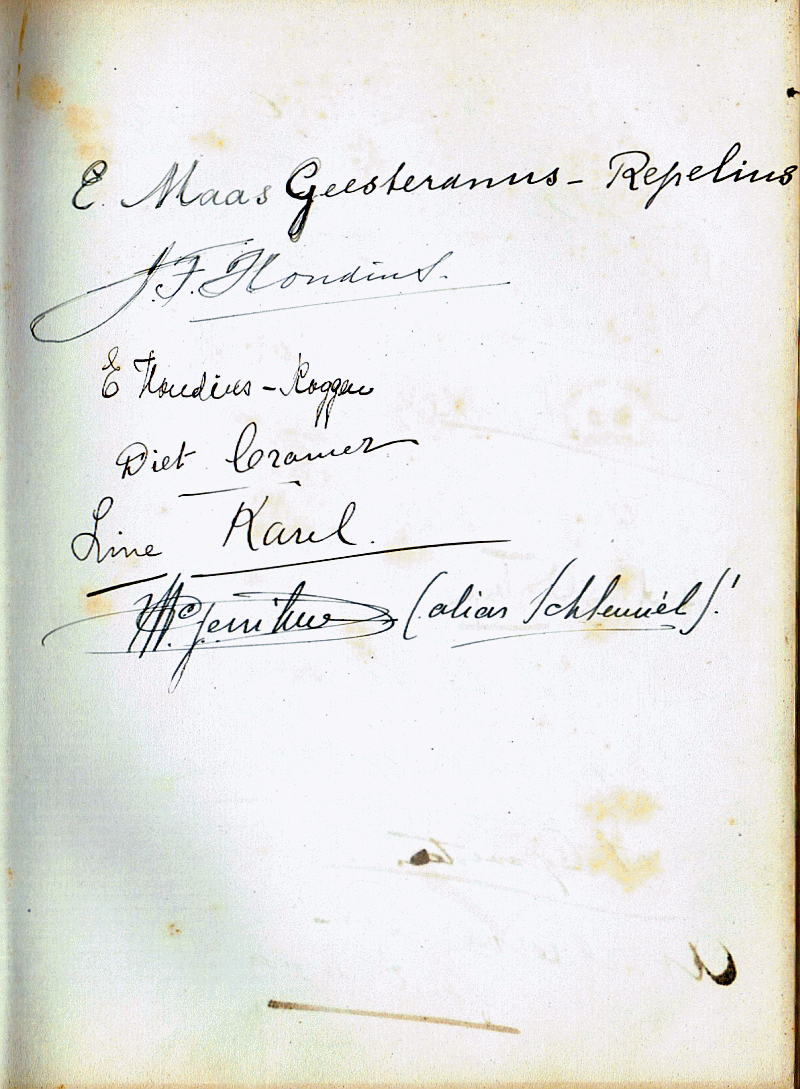 E. Maas Geesteranus - Repelius
J. F. Hondius.
E Hondius - Roggen
Diet Cramer
Line Karel.
Gerritsen (alias Schlemiel)!